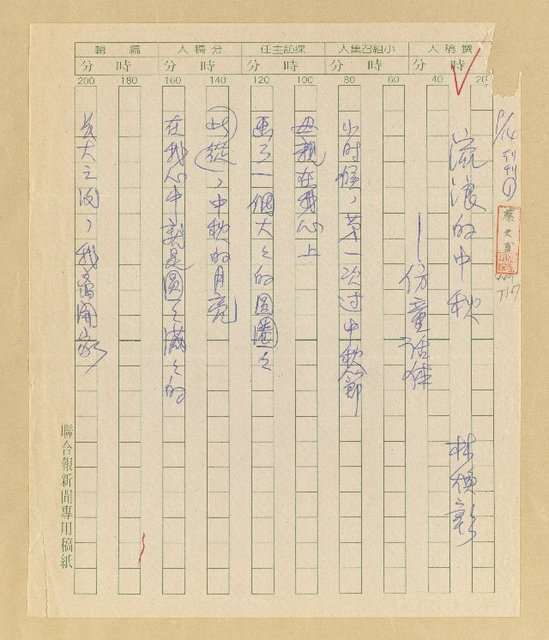 撰稿人 小組召集人 採訪主任 分稿人 編輯
時 分 時 分 時 分 時 分 時 分
20 40 60 80 100 120 140 160 180 200
流浪的中秋
——仿童話体
林煥彰
小时候，第一次过中秋節
母親在我心上
画了一個大大的圓圈々
从此，中秋的月亮
在我心中就是圓々滿々的
長大之後，我离開家
聯合報新聞專用稿紙